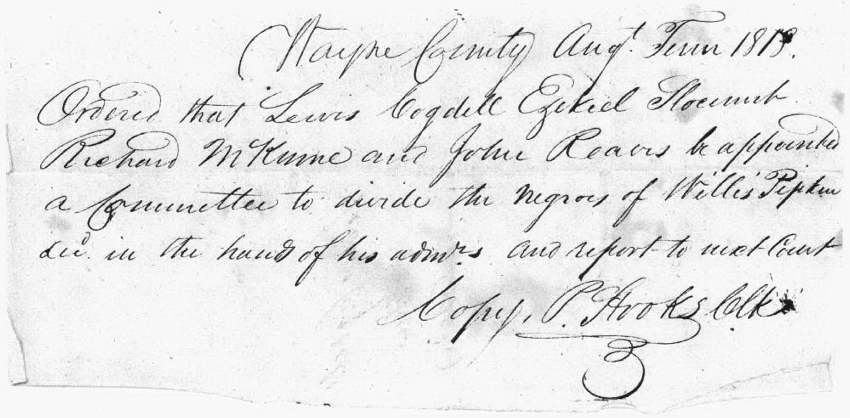 Wayne County Augt. Term 1818.
Ordered that Lewis Cogdell Ezekiel Slocumb
Richard McKinne and John Reaves be appointed
a Committee to divide the negroes of Willis Pipkin
decd. in the hands of his admrs and report to next Court
Copy, P. Hooks Clk